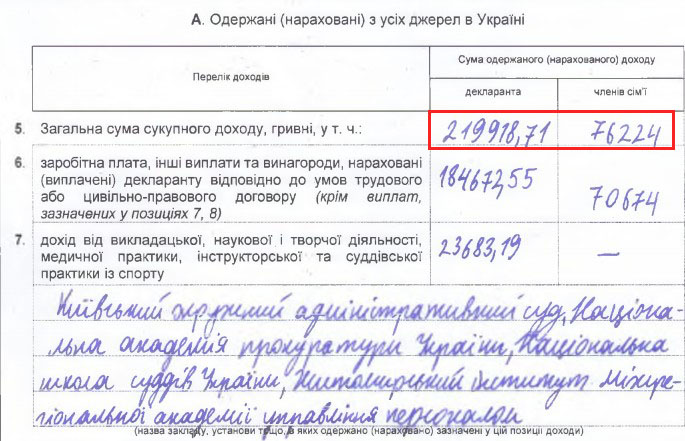 А. Одержані (нараховані) з усіх джерел в Україні
Перелік доходів
Сума одержаного (нарахованого) доходу
декларанта
членів сім'ї
5. Загальна сума сукупного доходу, гривні, у т. ч.:
219918,71
76224
6. заробітна плата, інші виплати та винагороди, нараховані
(виплачені) декларанту відповідно до умов трудового
або цивільно-правового договору (крім виплат,
зазначених у позиціях 7, 8)
184672,55
70674
7. дохід від викладацької, наукової і творчої діяльності,
медичної практики, інструкторської та суддівської
практики із спорту
23683,19
—
Київський окружний адміністративний суд, Націона-
льна академія прокуратури України, Національна
школа суддів України, Житомирський інститут Міжре-
гіональної академії управління персоналом
(назва закладу, установи тощо, в яких одержано (нараховано) зазначені у цій позиції доходи)